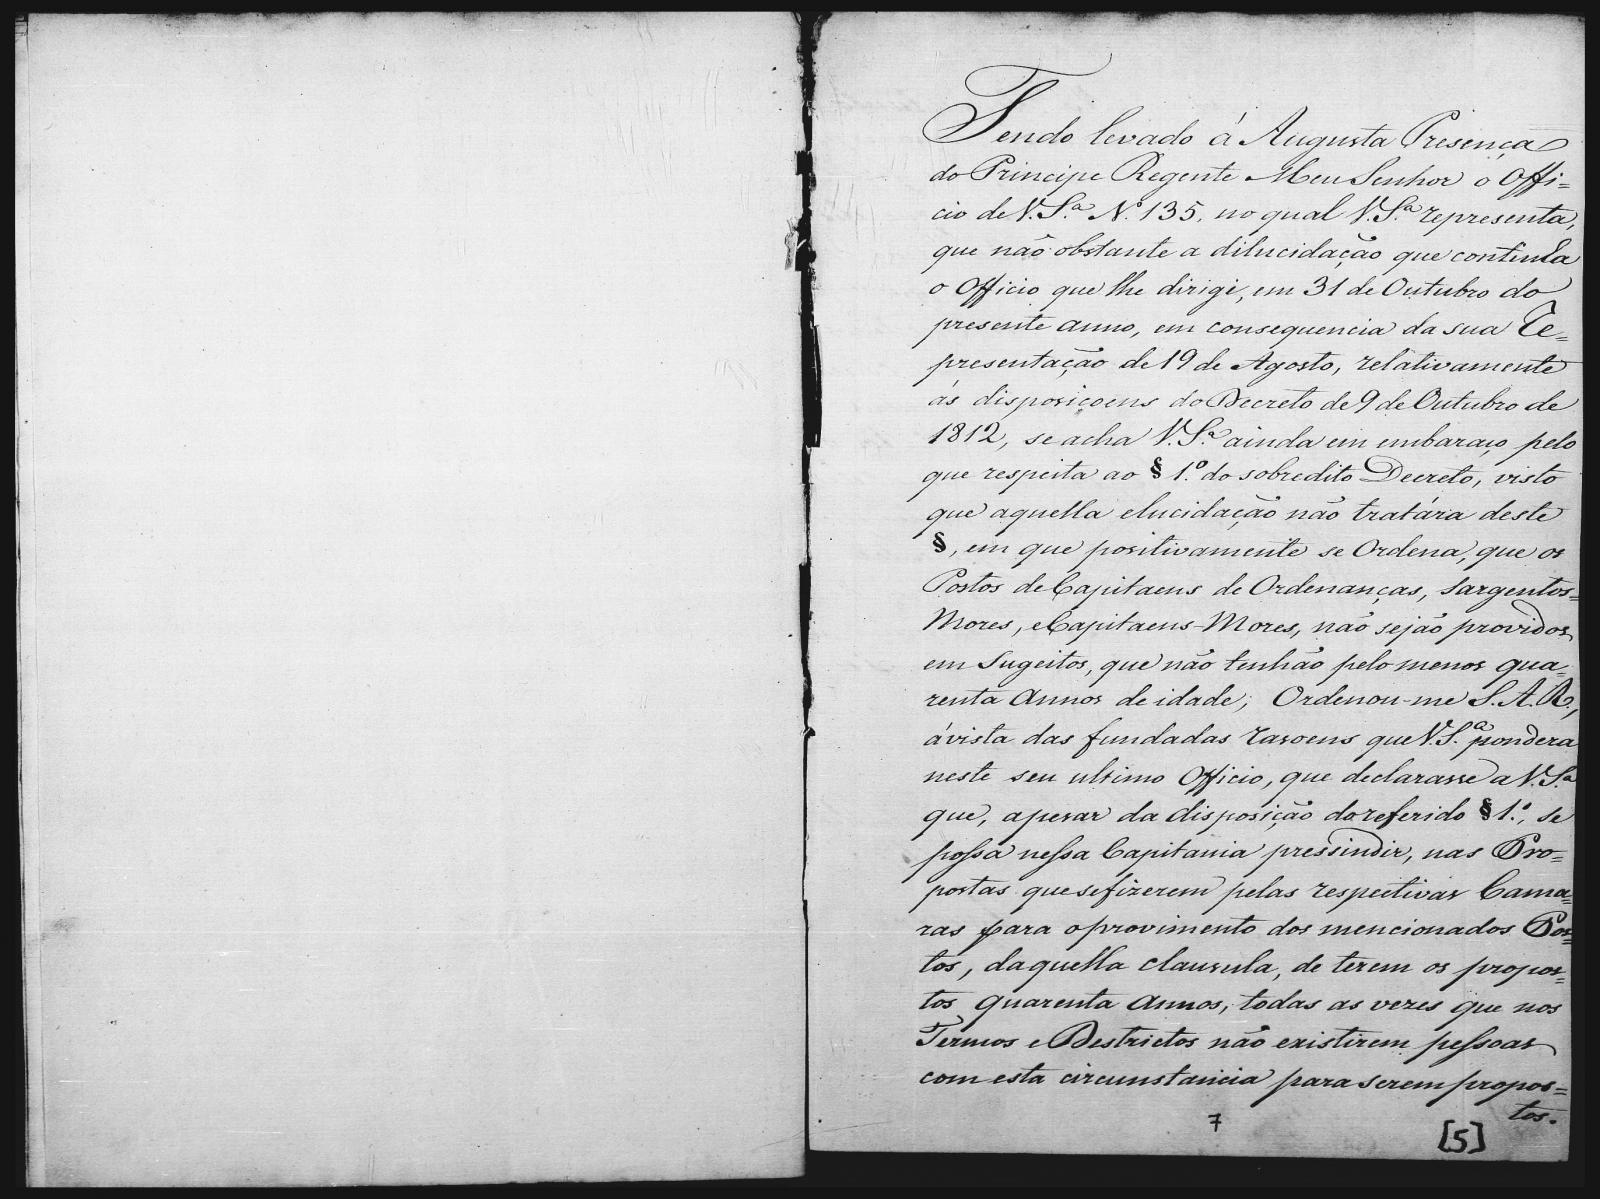 Sendo levado á Augusta Presença
do Principe Regente Meu Senhor o Offi=
cio de V. S.ª N.º 135, no qual V. S.ª representa,
que não obstante a dilucidação que continha
o Officio que lhe dirigi, em 31 de Outubro do
presente anno, em consequencia da sua Re=
presentação de 19 de Agosto, relativamente
ás disposiçoens do Decreto de 9 de Outubro de
1812, se acha V. S.ª ainda em embaraço, pelo
que respeita ao § 1.º do sobredito Decreto, visto
que aquella elucidação não tratára deste
§, em que positivamente se Ordena, que os
Postos de Capitaens de Ordenanças, Sargentos=
Mores, e Capitaens-Mores, não sejão providos
em Sugeitos, que não tenhão pelo menos qua
renta Annos de idade; Ordenou-me S. A. R.,
ávista das fundadas razoens que V. S.ª pondera
neste seu ultimo Officio, que declarasse a V. S.ª
que, apesar da disposição do referido § 1.º, se
possa nessa Capitania pressindir, nas Pro=
postas que se fizerem pelas respectivas Cama=
ras para o provimento dos mencionados Pos=
tos, daquella clausula, de terem os propos=
tos quarenta Annos, todas as vezes que nos
Termos e Destrictos não existirem pessoas
com esta circunstancia para serem propos=
tos.
7
[5]